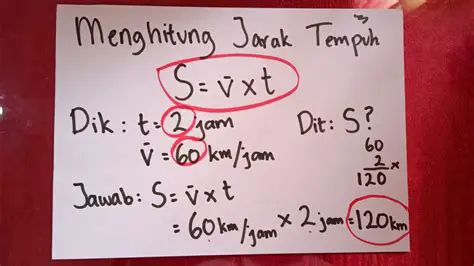 Menghitung Jarak Tempuh
S = v̄ x t
Dik : t = 2 jam
v̄ = 60 km/jam
Dit : S?
60
2 x
120
Jawab : S = v̄ x t
= 60 km/jam x 2 jam = 120 km